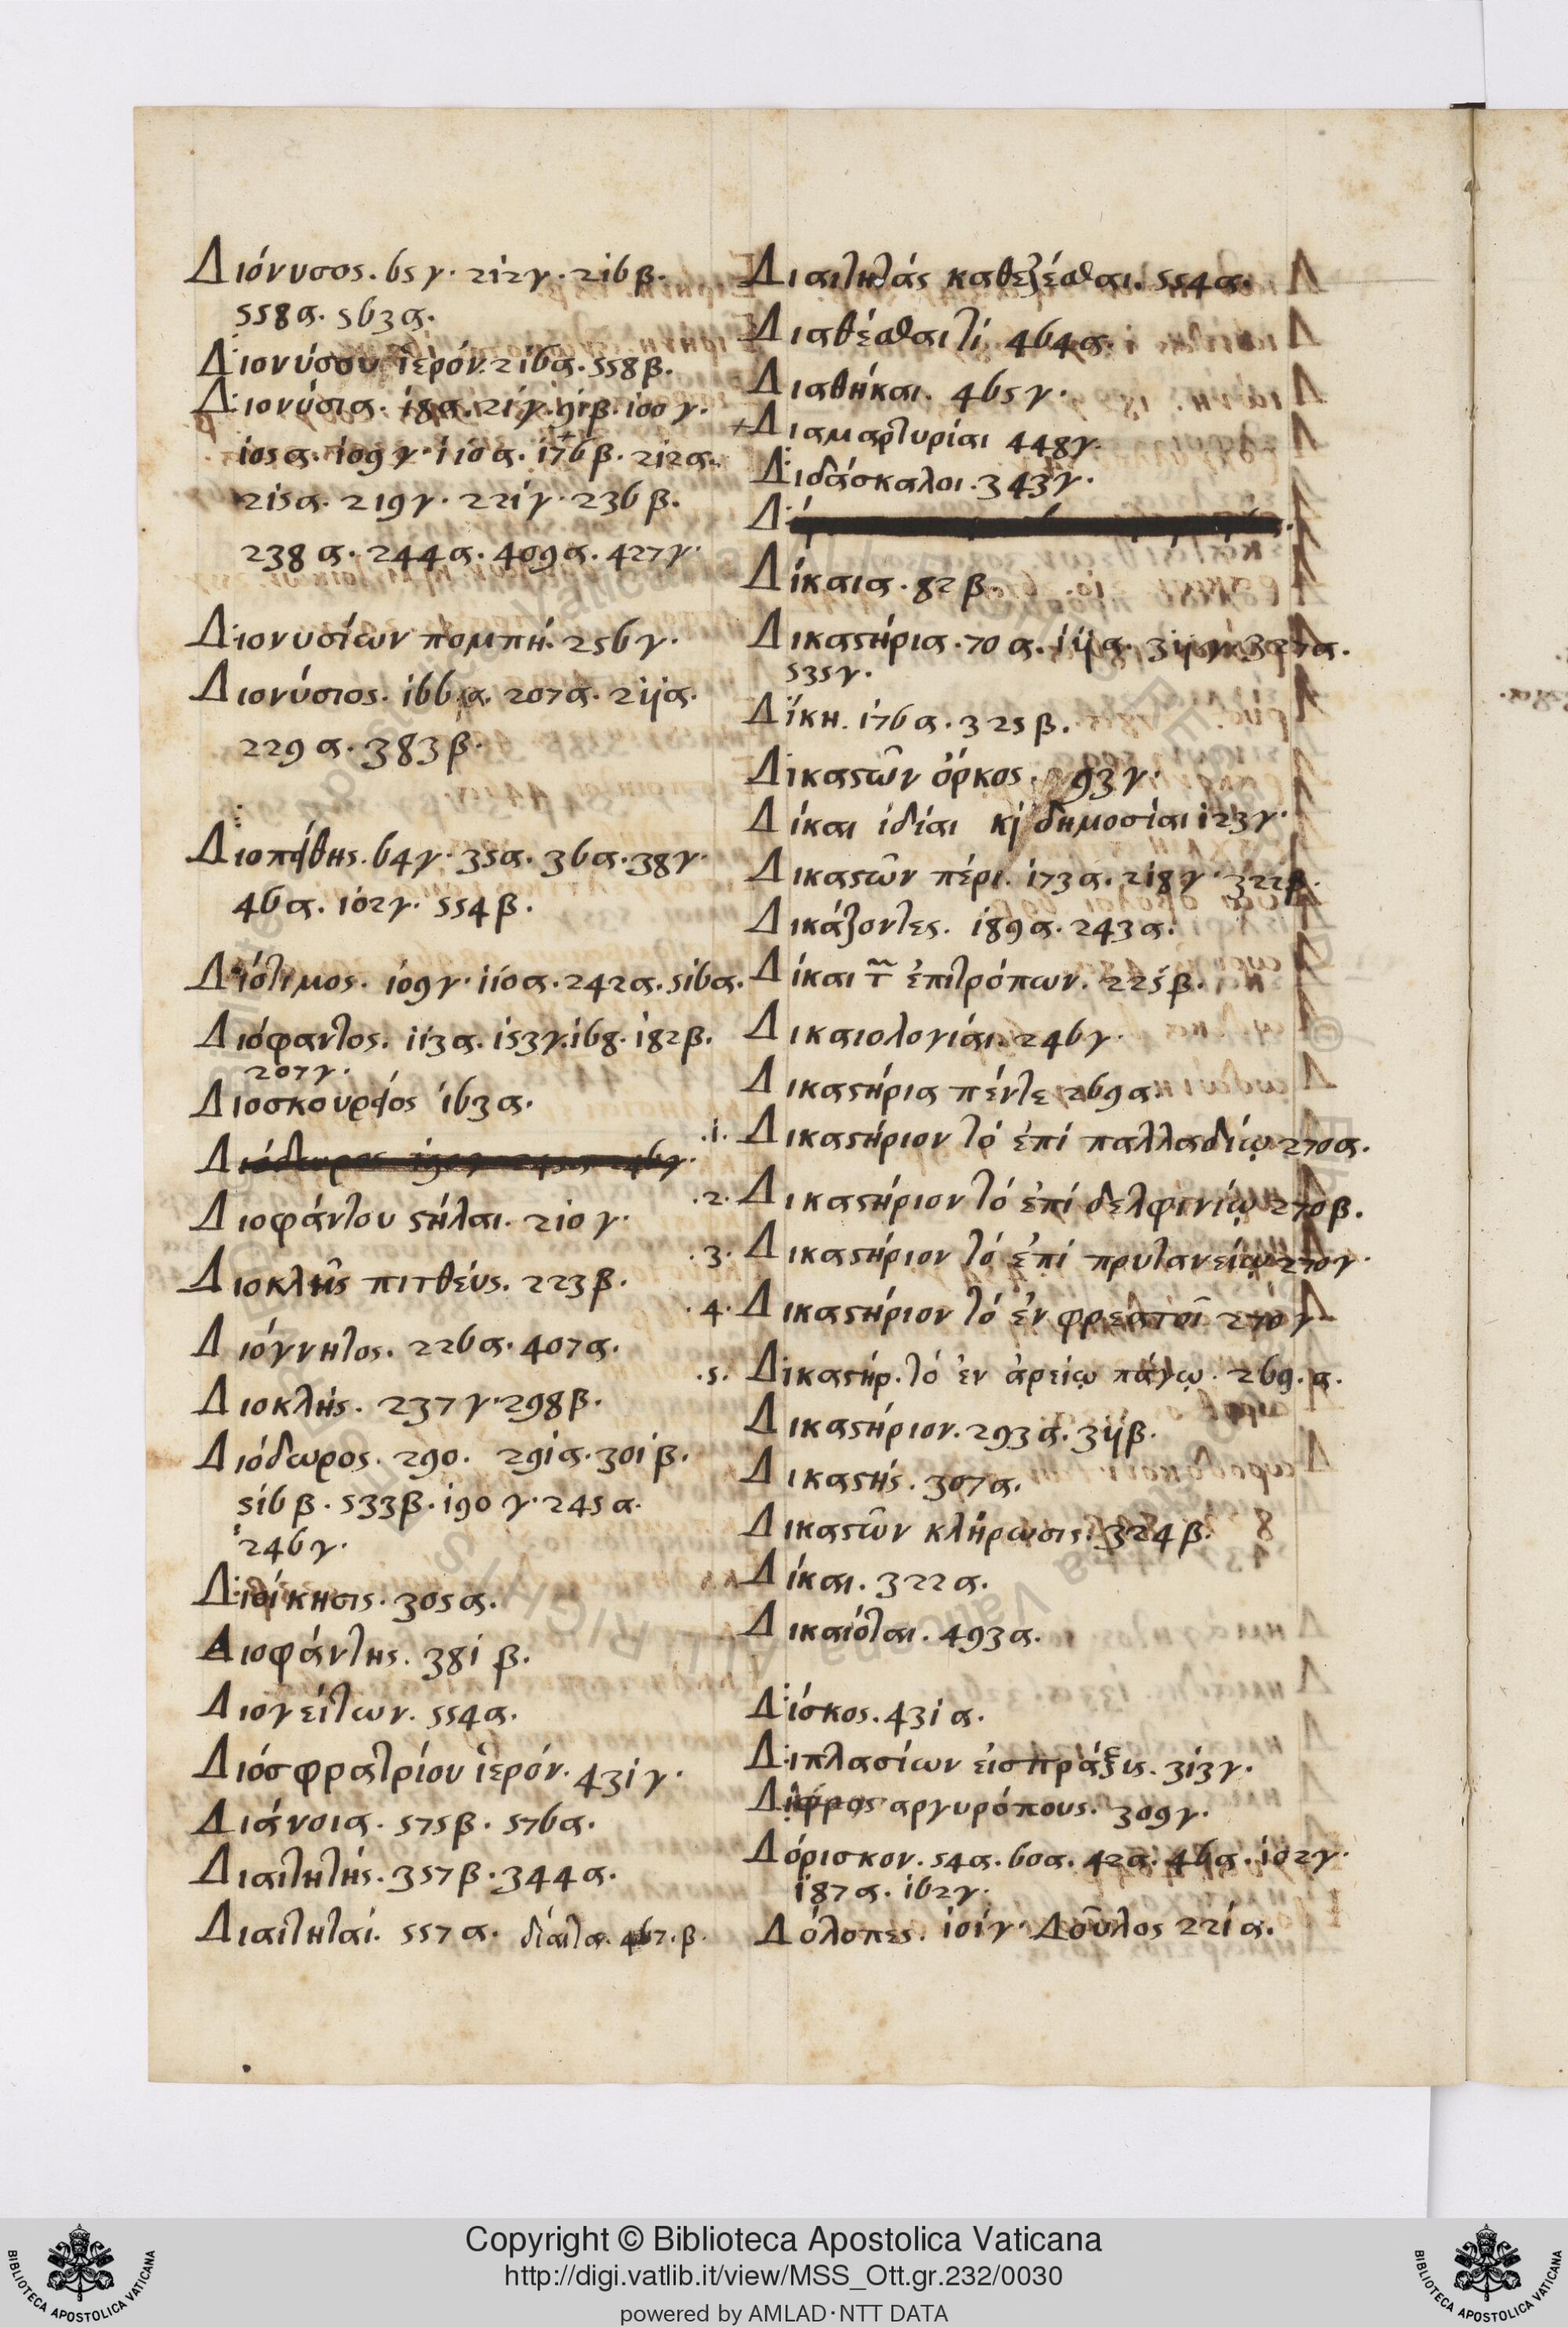 Διόνυσος. 65γ. 212γ. 216β.
558α. 563α.
Διονύσου ἱερόν. 216α. 558β.
Διονύσια. 18α. 21γ. 91β. 100γ.
105α. 109γ. 110α. 176β. 212α.
215α. 219γ. 221γ. 236β.
238α. 244α. 409α. 427γ.
Διονυσίων πομπή. 256γ.
Διονύσιος. 166α. 207α. 211α.
229α. 383β.
Διοπείθης. 64γ. 35α. 36α. 38γ.
46α. 102γ. 554β.
Διότιμος. 109γ. 110α. 242α. 516α.
Διόφαντος. 113α. 153γ. 168. 182β.
207γ.
Διοσκουρίος 163α.
Διόδωρος 190γ 245α 246γ.
Διοφάντου στήλαι. 210γ.
Διοκλῆς πιτθέυς. 223β.
Διόγνητος. 226α. 407α.
Διοκλής. 237γ. 298β.
Διόδωρος. 290. 291α. 301β.
516β. 533β. 190γ. 245α.
246γ.
Διοίκησις. 305α.
Διοφάντης. 381β.
Διογείτων. 554α.
Διόσφρατρίου ἱερόν. 431γ.
Διάνοια. 575β. 576α.
Διαιτητής. 357β. 344α.
Διαιτηταί. 557α. δίαιτα. 467.β.
Διαιτητάς καθελέσθαι. 554α.
Διαθέσθαι τί 464α.
Διαθήκαι. 465γ.
+Διαμαρτυρίαι 448γ.
Διδάσκαλοι. 343γ.
Δ
Δίκαια. 82β.
Δικαστήρια. 70α. 111α. 311γ. 327α.
535γ.
Δίκη. 176α. 325β.
Δικαστῶν ὅρκος. 93γ.
Δίκαι ἰδίαι κὶ δημοσίαι 123γ.
Δικαστῶν πέρι. 173α. 218γ. 322β.
Δικάζοντες. 189α. 243α.
Δίκαι τ῀ ἐπιτρόπων. 225β.
Δικαιολογίαι. 246γ.
Δικαστήρια πέντε 269α.
.1. Δικαστήριον τό ἐπί παλλαδίῳ 270α.
.2. Δικαστήριον τό ἐπί δελφινίῳ 270β.
.3. Δικαστήριον τό ἐπί πρυτανείῳ 270γ.
.4. Δικαστήριον τό ἐν φρεαττοῖ 270γ
.5. Δικαστήρ. τό ἐν ἀρείῳ πάγῳ. 269.α.
Δικαστήριον. 293α. 311β.
Δικαστής. 307α.
Δικαστῶν κλήρωσις. 324β.
Δίκαι. 322α.
Δικαιόται. 493α.
Δίσκος. 431α.
Διπλασίων εἰσπράξεις. 313γ.
Δίφρος αργυρόπους. 309γ.
Δόρισκον. 54α. 60α. 42α. 46α. 102γ.
187α. 162γ.
Δόλοπες. 101γ. Δοῦλος 221α.
Copyright © Biblioteca Apostolica Vaticana
http://digi.vatlib.it/view/MSS_Ott.gr.232/0030
powered by AMLAD·NTT DATA
BIBLIOTECA APOSTOLICA VATICANA
BIBLIOTECA APOSTOLICA VATICANA